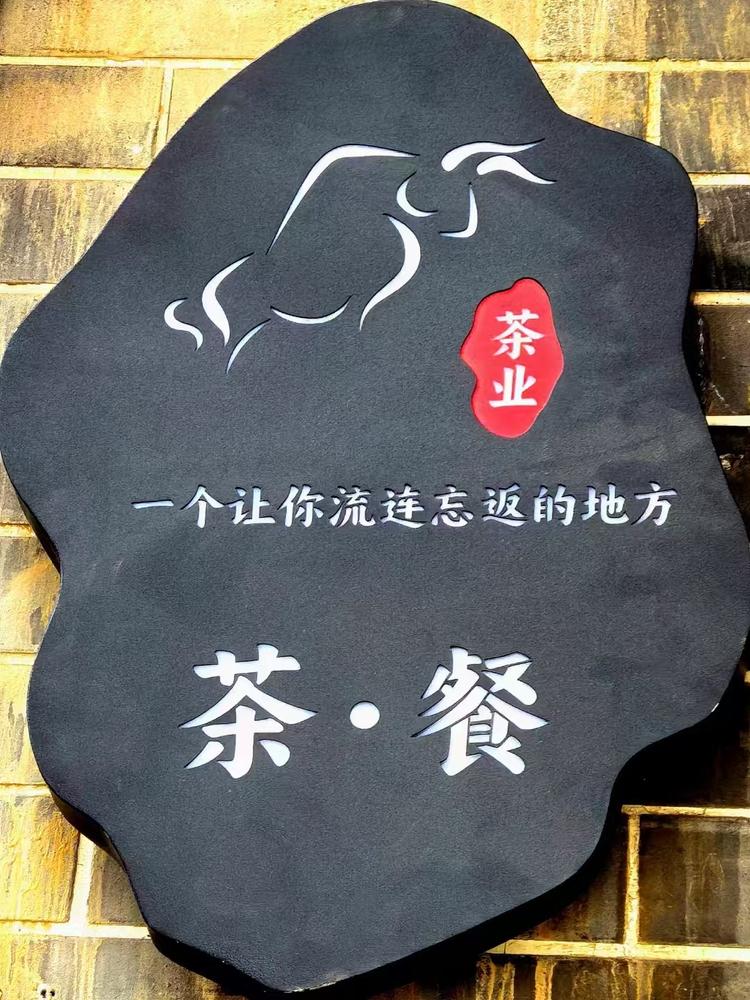 茶业
一个让你流连忘返的地方
茶·餐